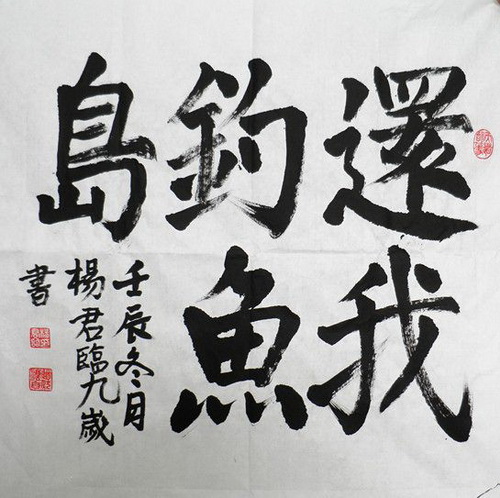 還我
釣魚
島
壬辰冬月
楊君臨九歲
書